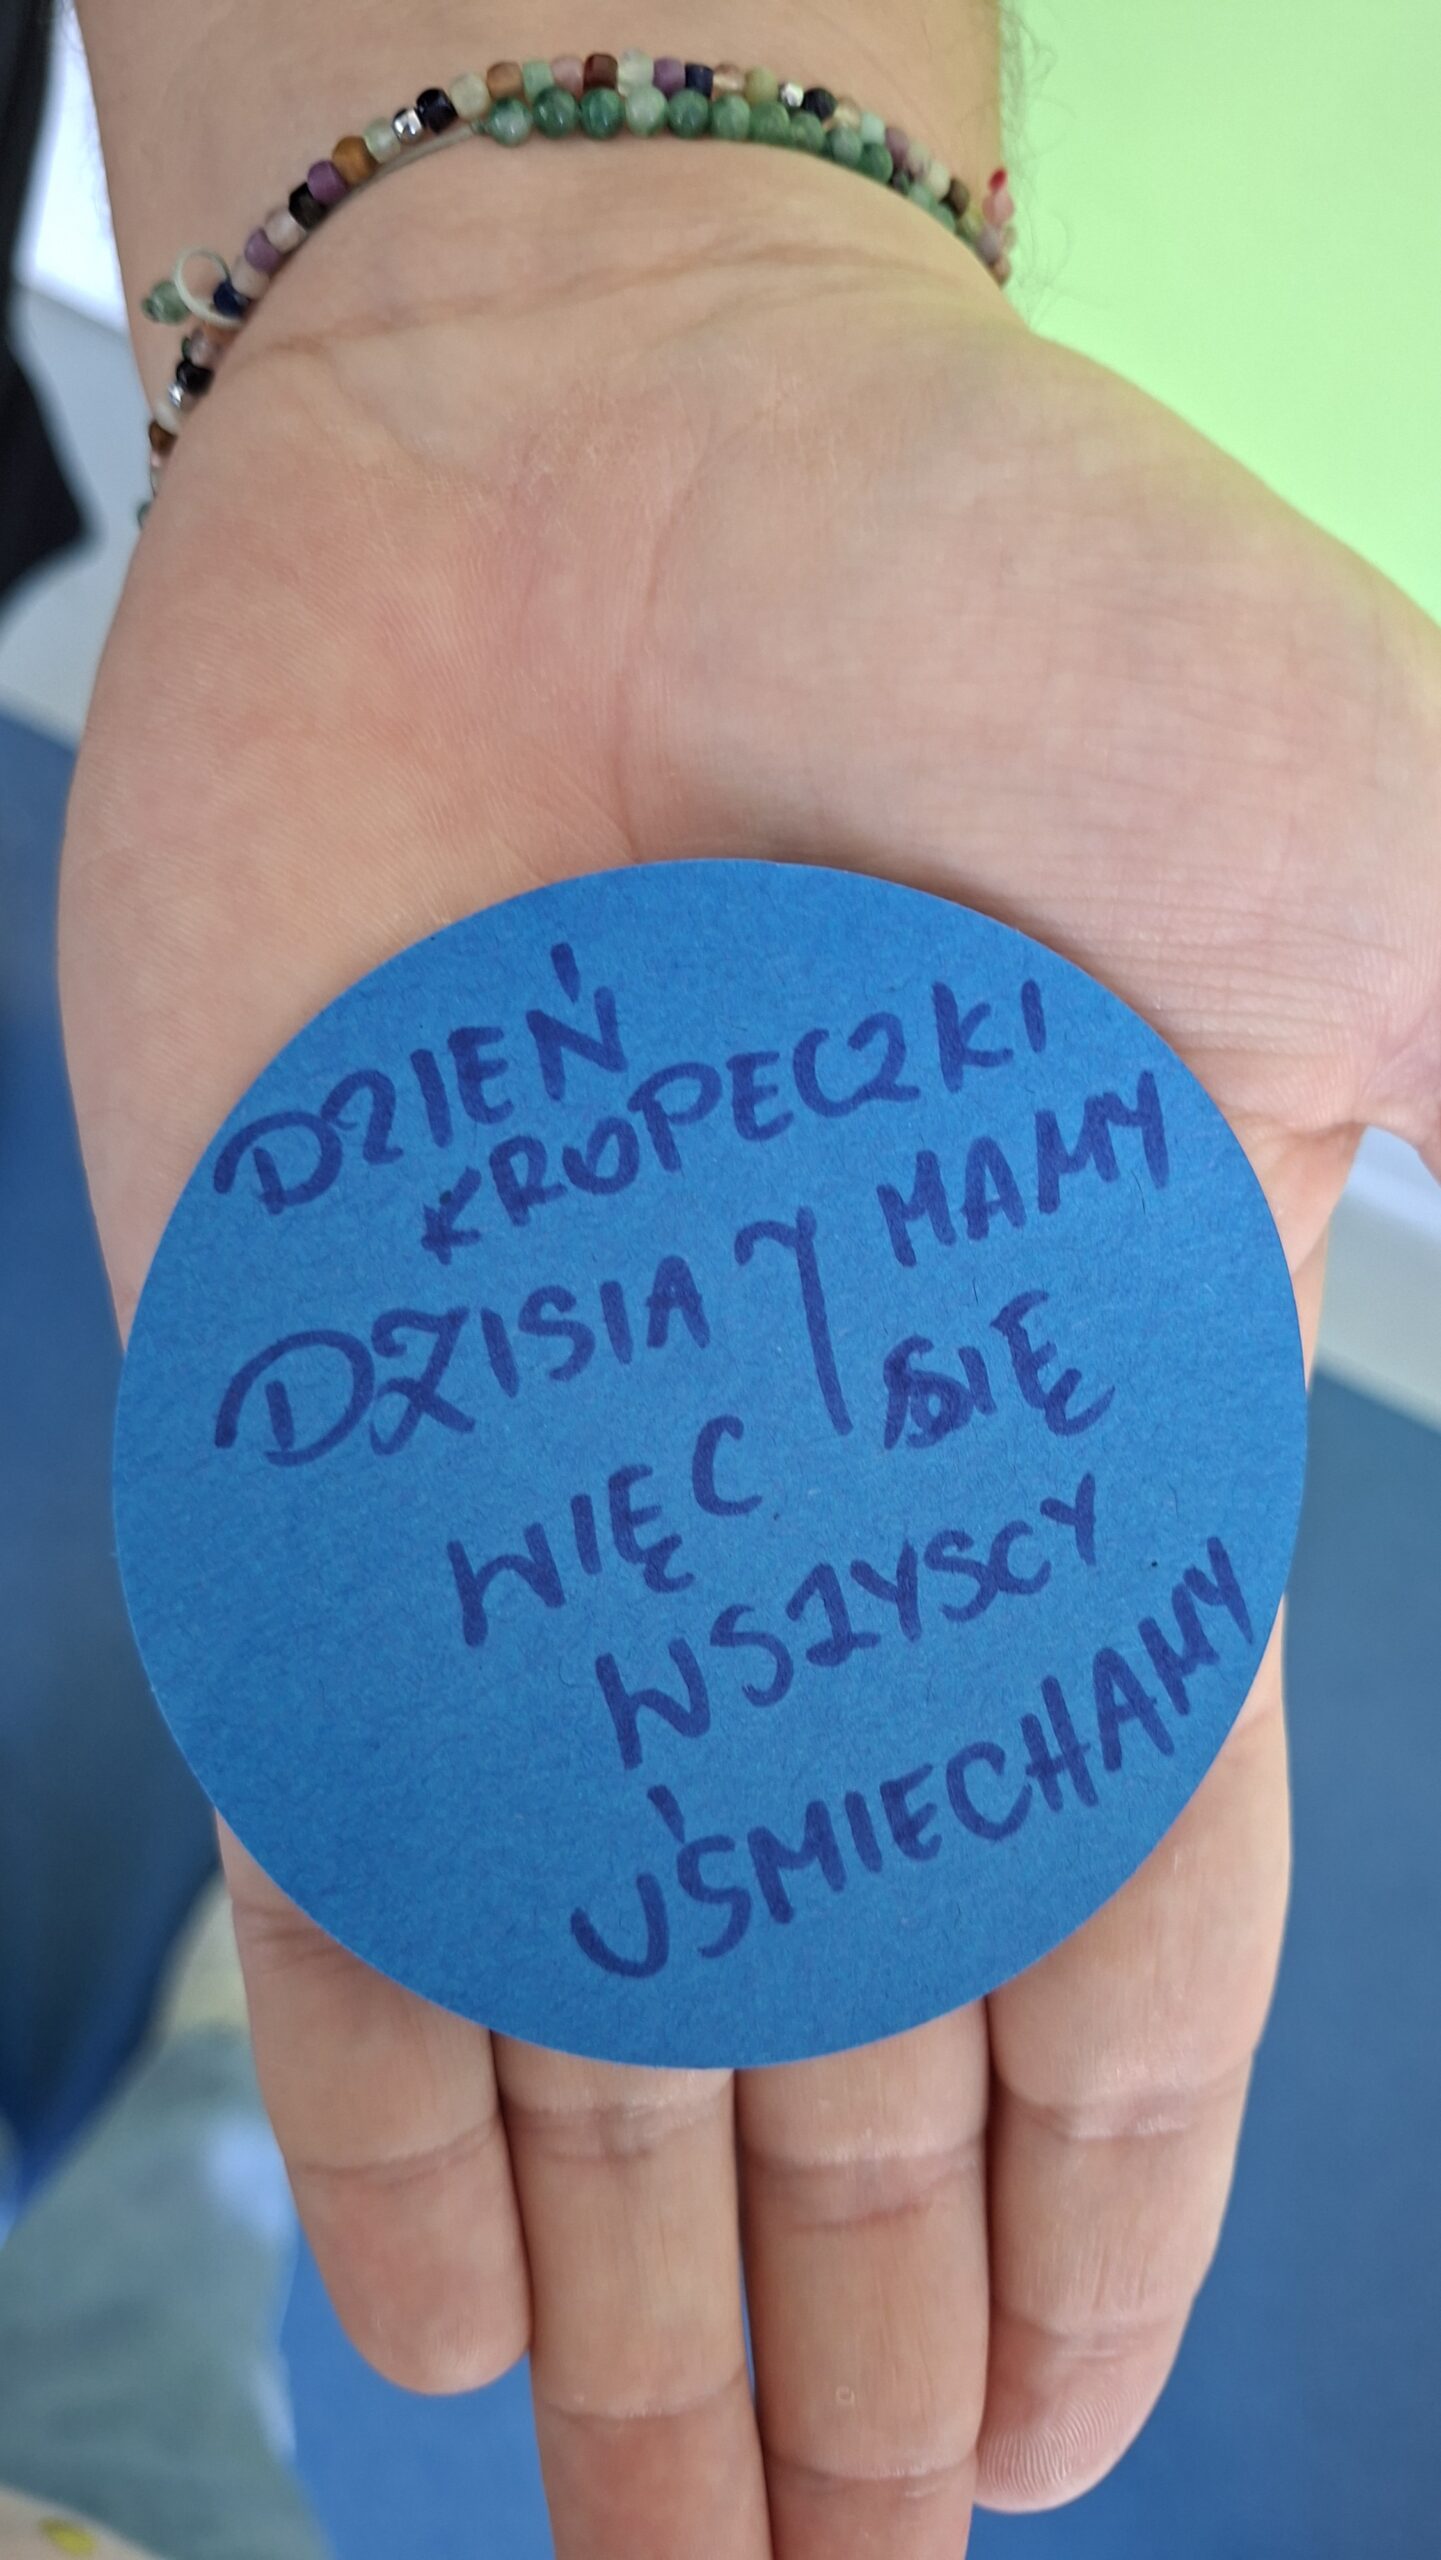 DZIEŃ
KROPECZKI
DZISIAJ MAMY
WIĘC SIĘ
WSZYSCY
UŚMIECHAMY